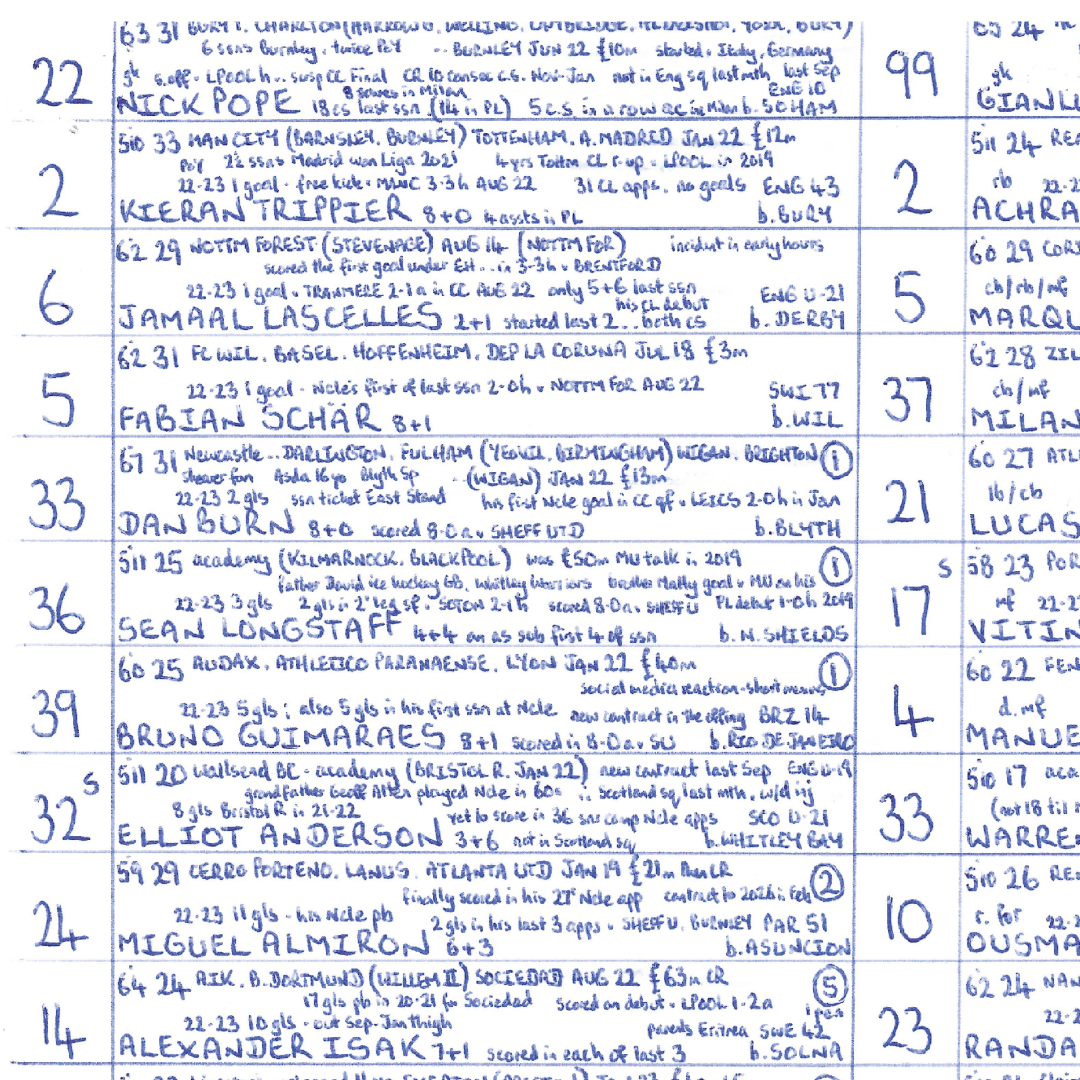 63 31 BURY T. CHARLTON (HARROW B, WELLING, CAMBRIDGE, ALDERSHOT, YORK, BURY)
6 ssns Burnley, twice PoY .. BURNLEY JUN 22 £10m started v Italy, Germany
gk s.off v LPOOL h .. susp CC Final CR 10 consec c.s. Nov-Jan not in Eng sq last mth, last Sep
22 8 saves in Milan ENG 10
NICK POPE 18 cs last ssn (14 in PL) 5 c.s. in a row ac in Milan b. SOHAM
510 33 MAN CITY (BARNSLEY, BURNLEY) TOTTENHAM, A. MADRID JAN 22 £12m
PoY 2½ ssns Madrid won Liga 2021 4 yrs Tottm CL r-up v LPOOL in 2019
2 22-23 1 goal - free kick v MANC 3-3 h AUG 22 31 CL apps, no goals ENG 43
KIERAN TRIPPIER 8+0 4 assts in PL b. BURY
62 29 NOTTM FOREST (STEVENAGE) AUG 14 (NOTTM FOR) incident in early hours
scored the first goal under EH .. in 3-3 h v BRENTFORD
6 22-23 1 goal v TRANMERE 2-1 a in CC AUG 22 only 5+6 last ssn ENG U-21
his CL debut
JAMAAL LASCELLES 2+1 started last 2 .. both cs b. DERBY
62 31 FC WIL, BASEL, HOFFENHEIM, DEP LA CORUNA JUL 18 £3m
5 22-23 1 goal - Ncle's first of last ssn 2-0 h v NOTTM FOR AUG 22 SWI 77
FABIAN SCHÄR 8+1 b. WIL
67 31 Newcastle .. DARLINGTON, FULHAM (YEOVIL, BIRMINGHAM) WIGAN, BRIGHTON 1
shearer fan Asda 16yo Blyth Sp .. (WIGAN) JAN 22 £13m
33 22-23 2 gls ssn ticket East Stand his first Ncle goal in CC qf v LEICS 2-0 h in Jan
DAN BURN 8+0 scored 8-0 a v SHEFF UTD b. BLYTH
511 25 academy (KILMARNOCK, BLACKPOOL) was £50m MU talk in 2019 1
father David ice hockey GB, Whitley Warriors brother Matty goal v MU on his
36 22-23 3 gls 2 gls in 2nd leg sf v SOTON 2-1 h scored 8-0 a v SHEFF U PL debut 1-0 h 2019
SEAN LONGSTAFF 4+4 on as sub first 4 of ssn b. N. SHIELDS
60 25 AUDAX, ATHLETICO PARANAENSE, LYON JAN 22 £40m 1
social media reaction - short means
39 22-23 5 gls ; also 5 gls in his first ssn at Ncle new contract in the offing BRZ 14
BRUNO GUIMARAES 8+1 scored in 8-0 a v SU b. RIO DE JANEIRO
S 511 20 Wallsend BC - academy (BRISTOL R, JAN 22) new contract last Sep ENG U-19
grandfather Geoff Allen played Ncle in 60s in Scotland sq last mth, w/d inj
32 8 gls Bristol R in 21-22 yet to score in 36 snr comp Ncle apps SCO U-21
ELLIOT ANDERSON 3+6 not in Scotland sq b. WHITLEY BAY
59 29 CERRO PORTENO, LANUS, ATLANTA UTD JAN 19 £21m then CR 2
finally scored in his 27th Ncle app contract to 2026 in Feb
24 22-23 11 gls - his Ncle pb 2 gls in his last 3 apps v SHEFF U, BURNLEY PAR 51
MIGUEL ALMIRON 6+3 b. ASUNCION
64 24 AIK, B. DORTMUND (WILLEM II) SOCIEDAD AUG 22 £63m CR 5
17 gls pb in 20-21 for Sociedad scored on debut v LPOOL 1-2 a 1 pen
14 22-23 10 gls - out Sep-Jan thigh parents Eritrea SWE 42
ALEXANDER ISAK 7+1 scored in each of last 3 b. SOLNA
65 24
99 gk
GIANLU
511 24 REA
2 rb 22-2
ACHRA
60 29 COR
5 cb/rb/mf
MARQU
62 28 ZIL
37 cb/mf
MILAN
60 27 ATL
21 lb/cb
LUCAS
S 58 23 POR
17 mf 22-2
VITIN
60 22 FEN
4 d.mf
MANUE
510 17 aca
33 (not 18 til
WARRE
510 26 RE
10 r. for 22-2
OUSMA
62 24 NAN
23 22-2
RANDA